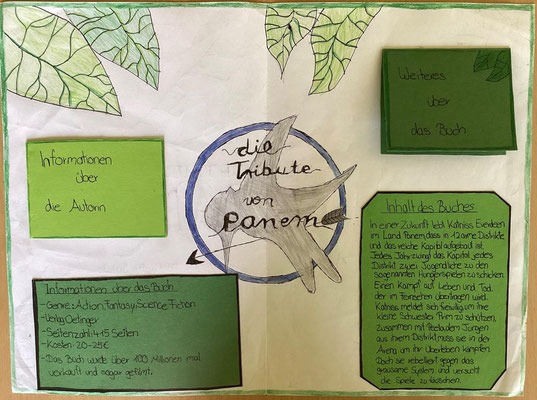 die
Tribute
von
Panem
Informationen
über
die Autorin
Weiteres
über
das Buch
Informationen über das Buch
- Genre: Action, Fantasy, Science Fiction
- Verlag: Oetinger
- Seitenzahl: 415 Seiten
- Kosten: 20-25€
- Das Buch wurde über 100 Millionen mal
verkauft und sogar gefilmt.
Inhalt des Buches
In einer Zukunft lebt Katniss Everdeen
im Land Panem, dass in 12 arme Distrikte
und das reiche Kapitol aufgebaut ist.
Jedes Jahr zwingt das Kapitol jedes
Distrikt zwei Jugendliche zu den
sogenannten Hungerspielen zu schicken.
Einen Kampf auf Leben und Tod,
der im Fernsehen übertragen wird.
Katniss meldet sich freiwillig um ihre
kleine Schwester Prim zu schützen.
Zusammen mit Peeta dem Jungen
aus ihrem Distrikt muss sie in der
Arena um ihr Überleben kämpfen.
Doch sie rebelliert gegen das
grausame System und versucht
die Spiele zu